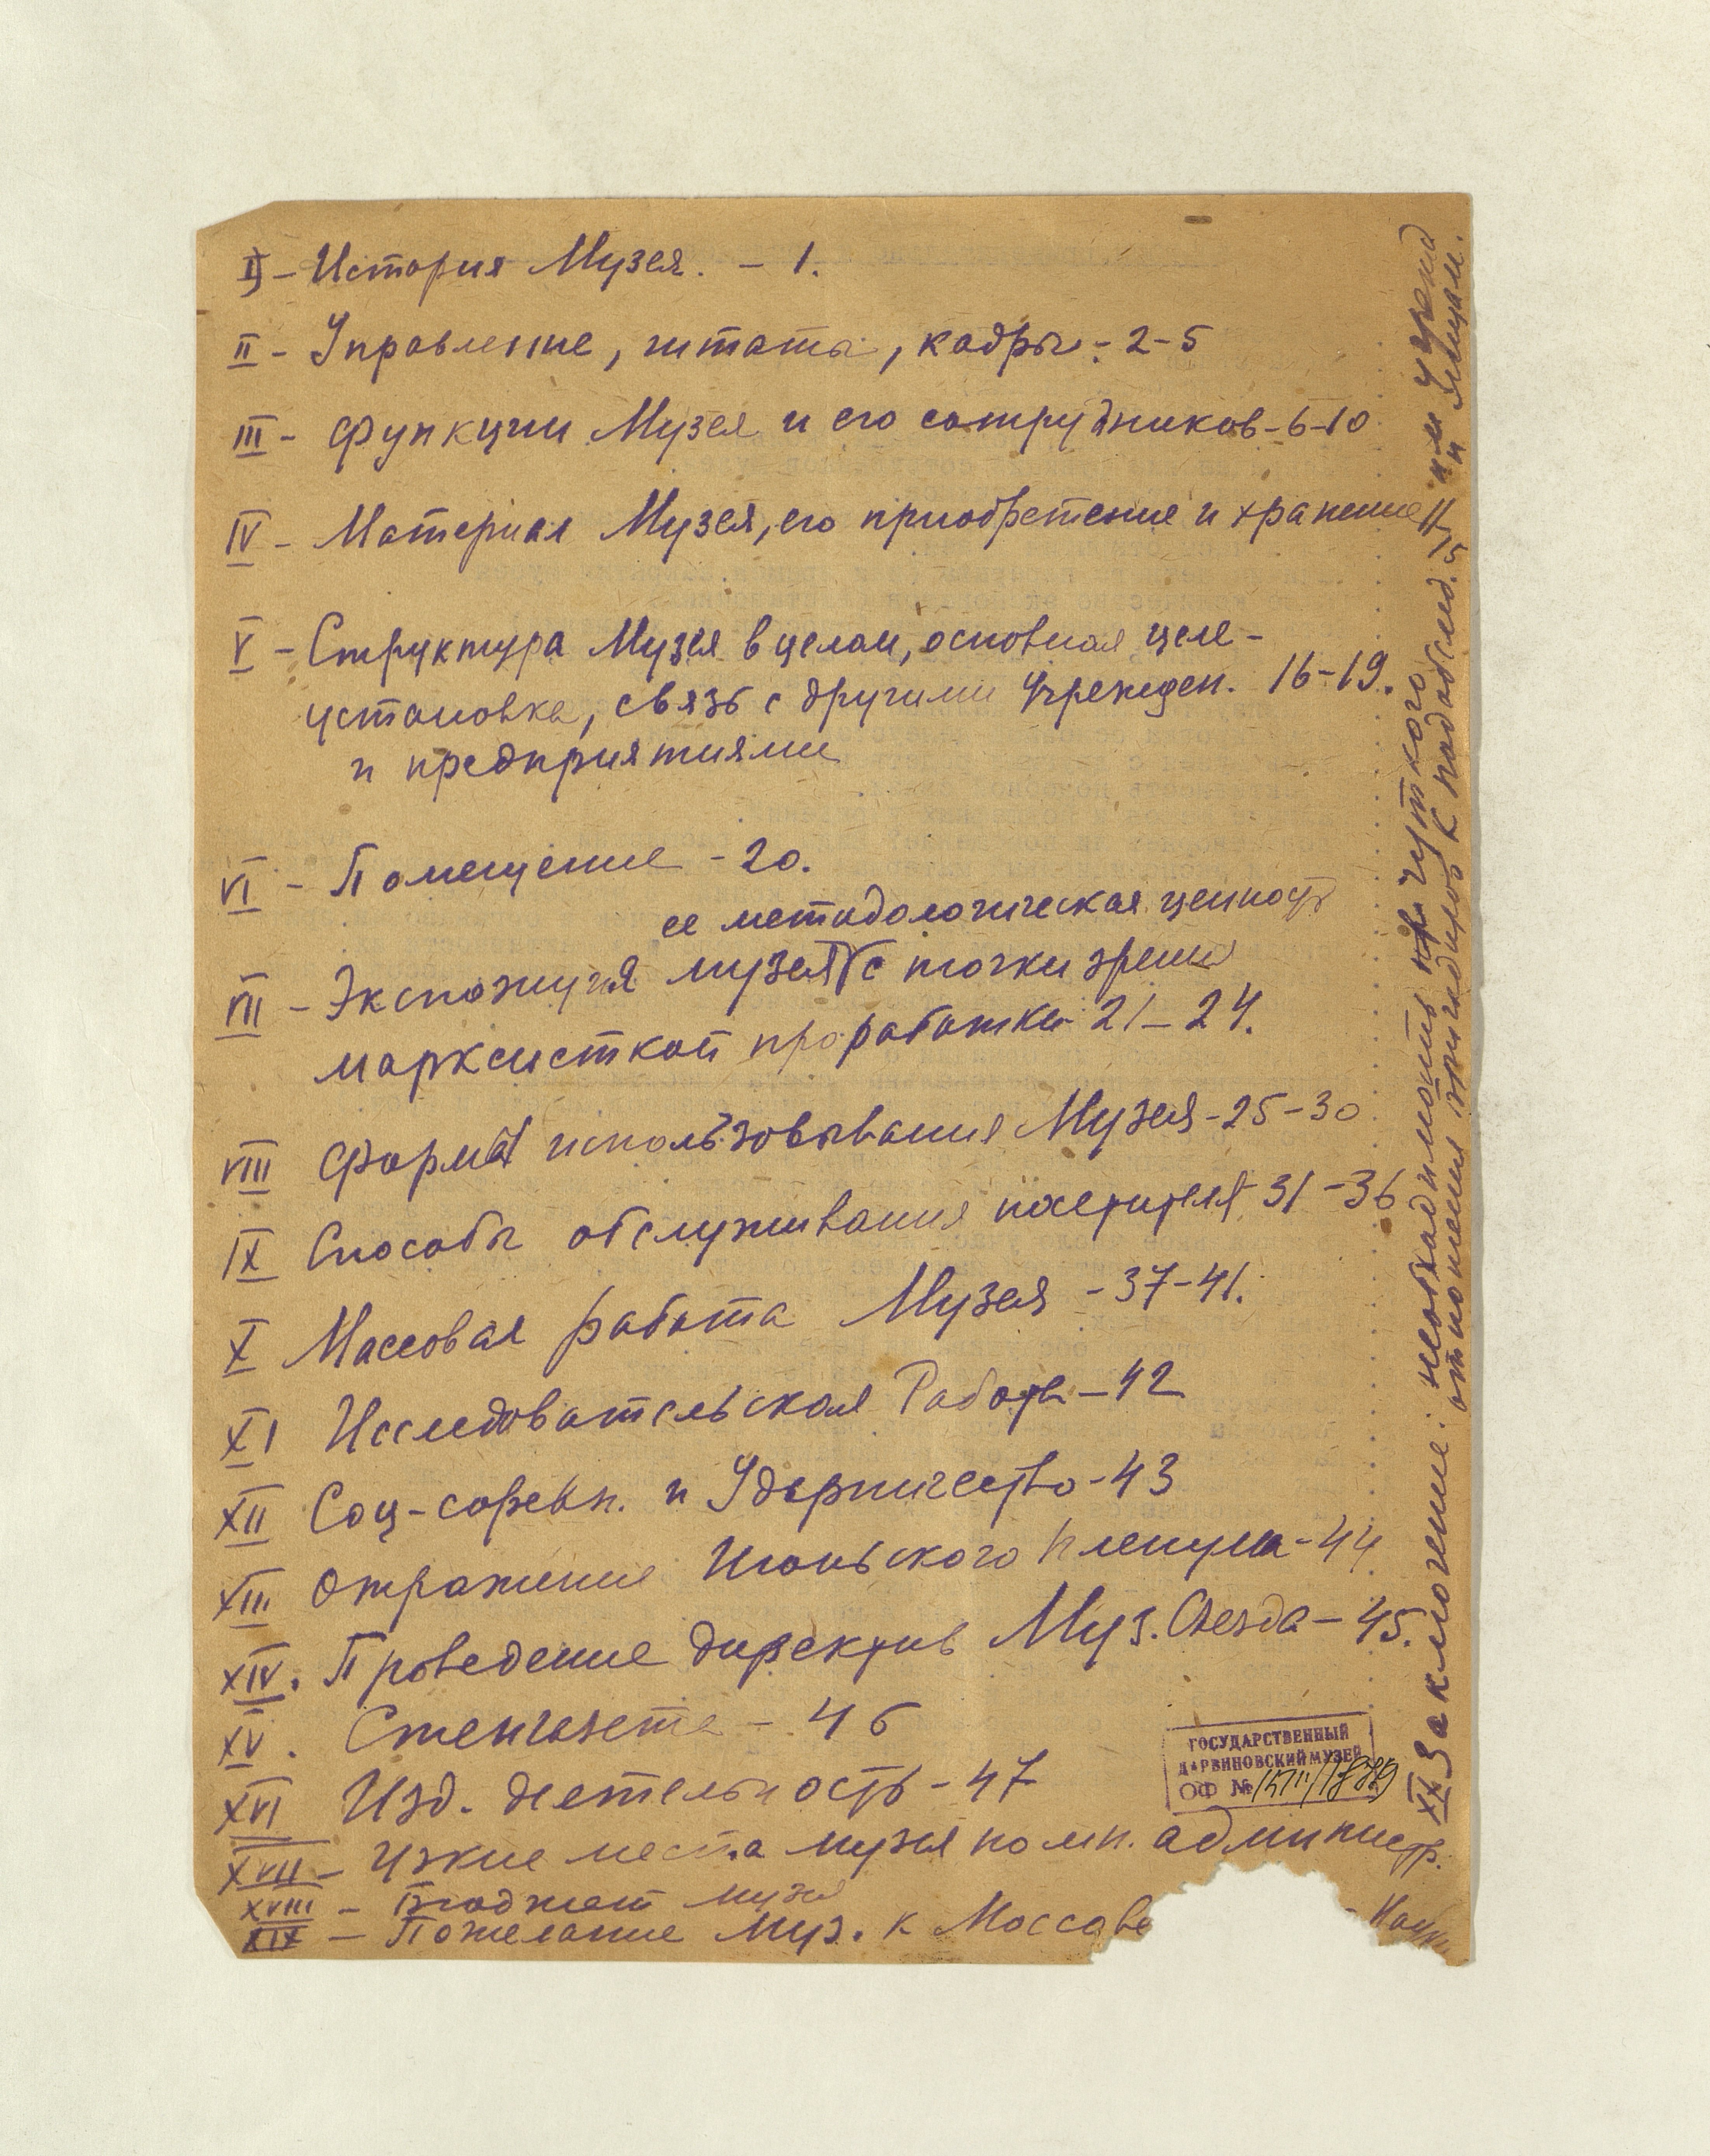 I) - История Музея. - 1.
II - Управление, штаты, кадры - 2-5
III - Функции Музея и его сотрудников - 6-10
IV - Материал Музея, его приобретение и хранение 11-15
V - Структура Музея в целом, основная целе-
установка, связь с другими Учрежден. 16-19.
и предприятиями
VI - Помещение - 20.
ее методологическая ценность
VII - Экспозиция музея с точки зрения
марксисткой проработки 21-24.
VIII Формы использовывания Музея - 25-30
IX Способы обслуживания посетителя 31-36
X Массовая работа Музея - 37-41.
XI Исследовательская Работа - 42
XII Соц-соревн. и Ударничество - 43
XIII Отражение Июньского пленума - 44
XIV. Проведение директив Муз. Съезда - 45.
XV. Стенгазета - 46
XVI Изд. деятельность - 47
XVII - Узкие места музея по мн. администр.
XVIII - Бюджет музея
XIX - Пожелание Муз. к Моссове
XX Заключение: необходимость чуткого
отношения бригадиров к подобслед.
им учрежд
и лицам.
ГОСУДАРСТВЕННЫЙ
ДАРВИНОВСКИЙ МУЗЕЙ
ОФ №